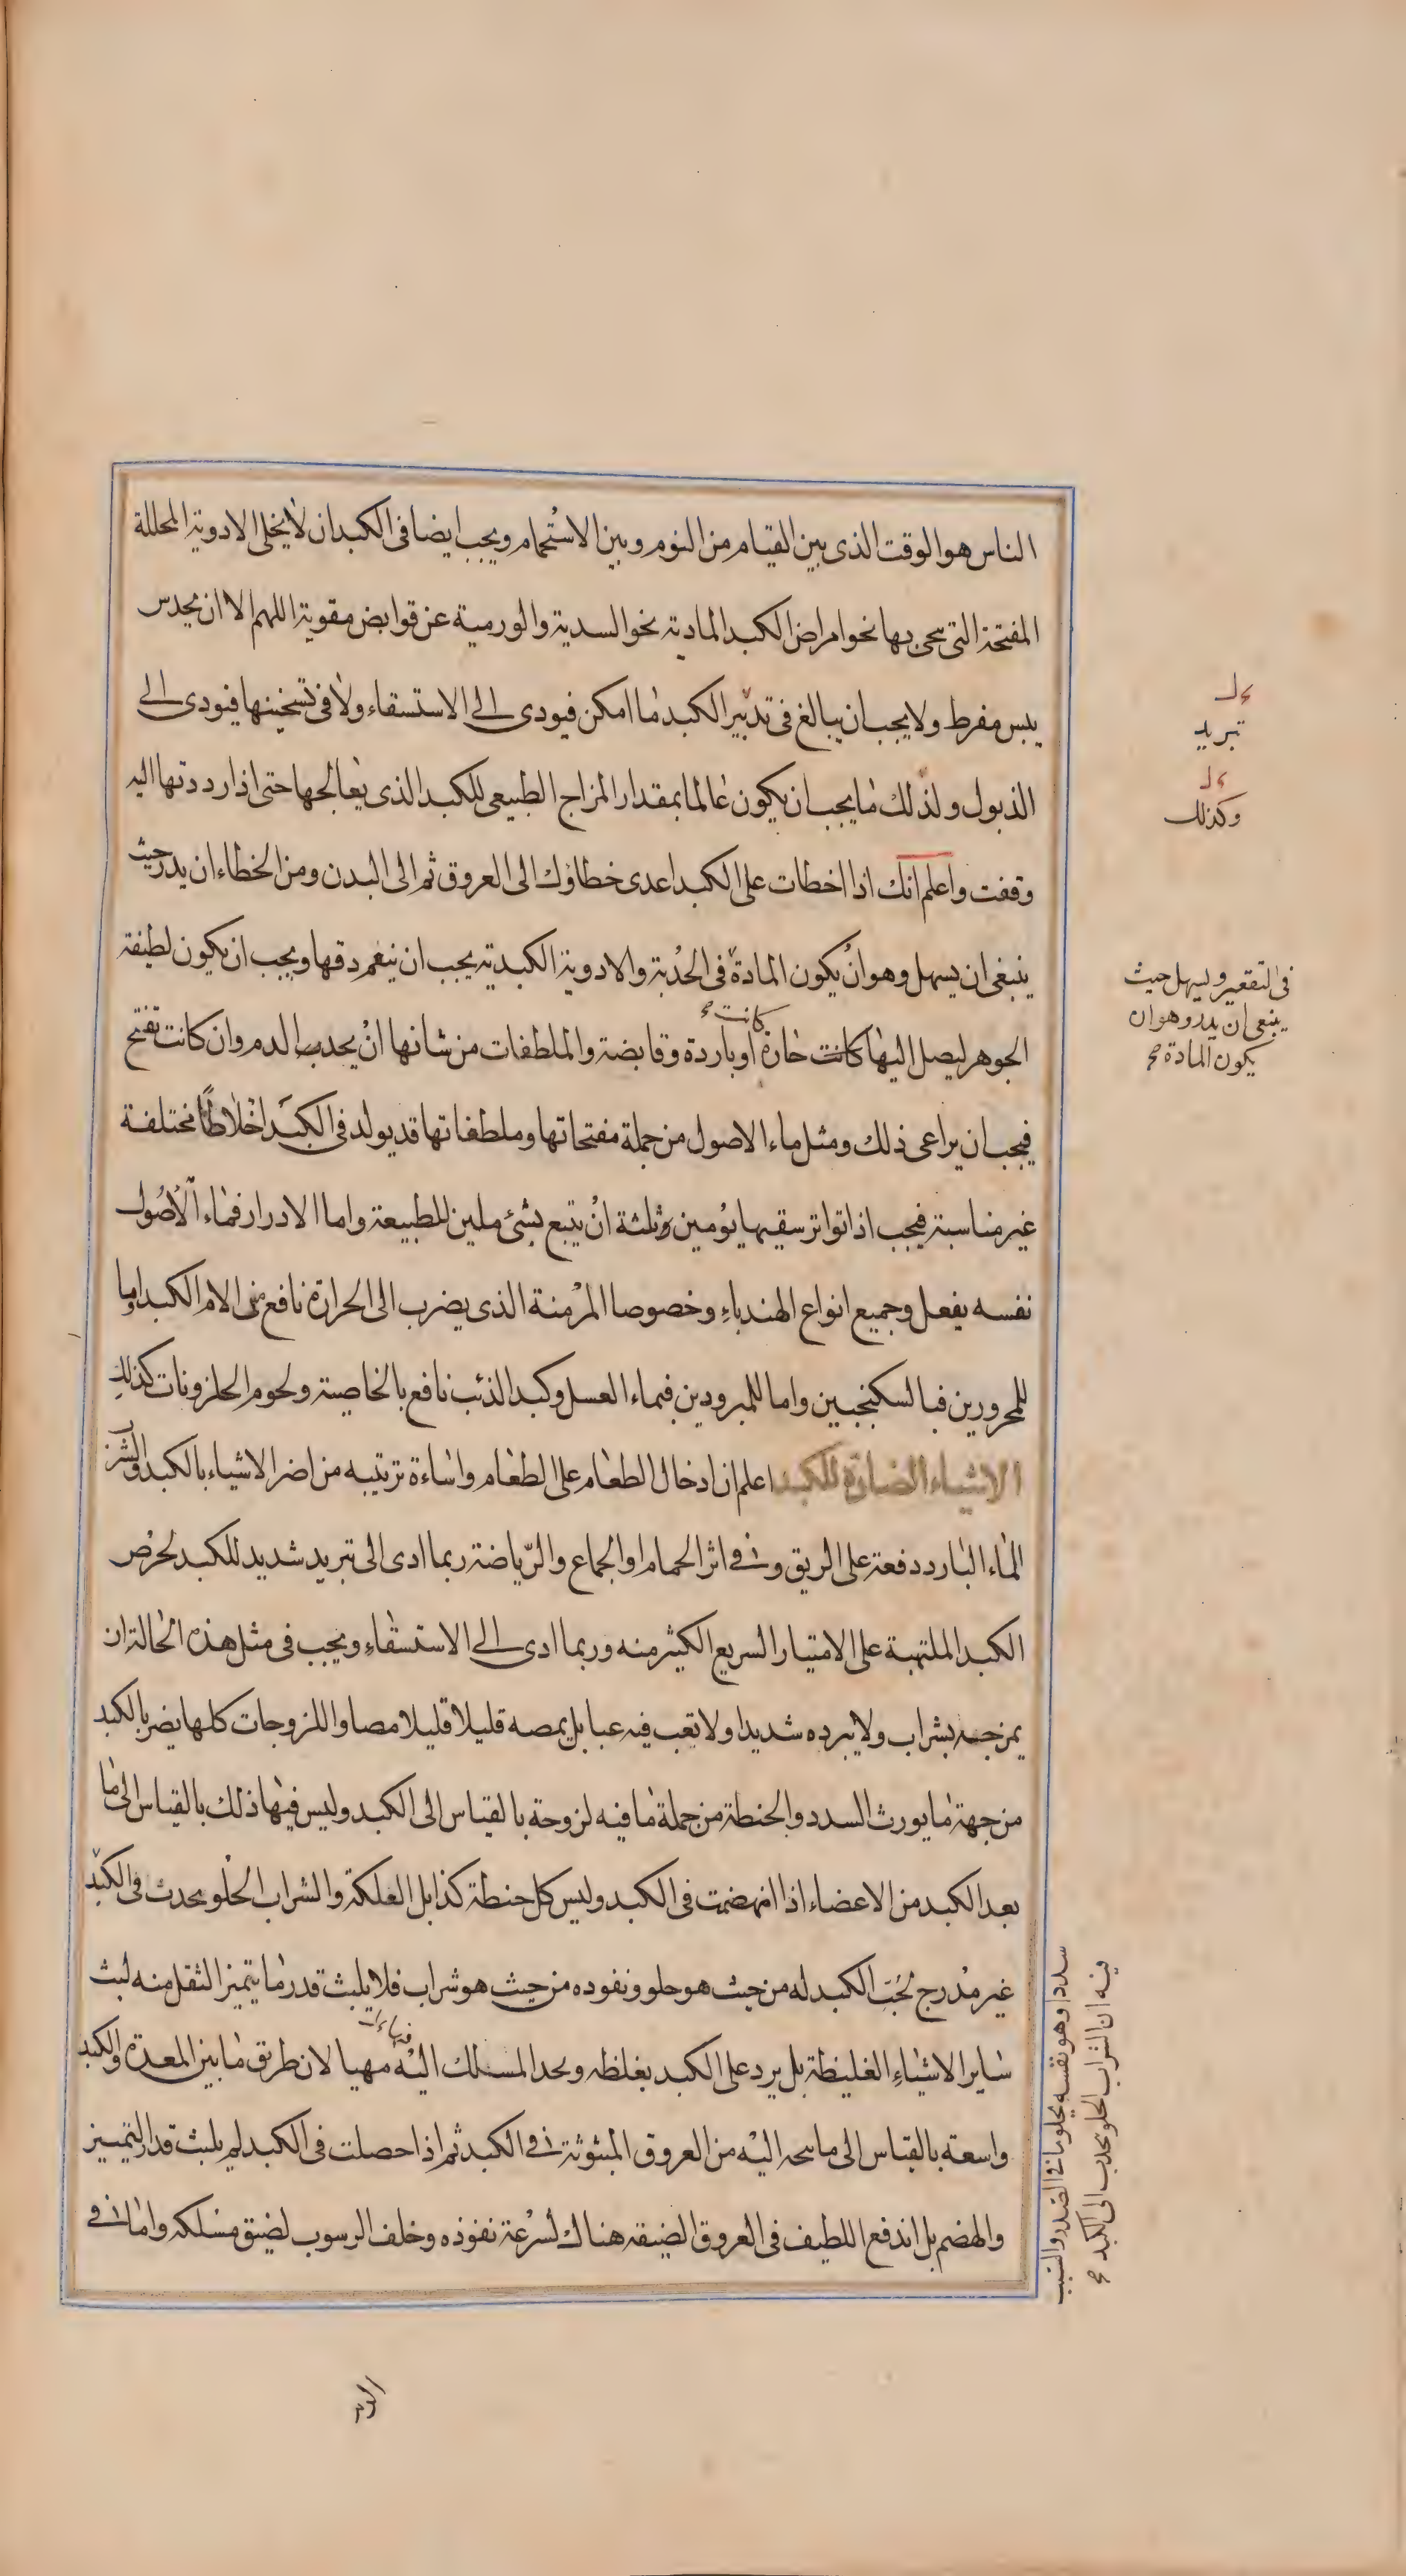 الناس هو الوقت الذى بين القيام من النوم وبين الاستحمام ويجب ايضا فى الكبد ان لا يخلى الادوية المحللة
المفتحة التى ينحى بها نحو امراض الكبد المادية نحو السدية والورمية عن قوابض مقوية اللهم الا ان يحدس
يبس مفرط ولا يجب ان يبالغ فى تدبير الكبد ما امكن فيودى الى الاستسقاء ولا فى تسخينها فيودى الى
الذبول ولذلك ما يجب ان يكون عالما بمقدار المزاج الطبيعى للكبد الذى يعالجها حتى اذا رددتها اليه
وقفت واعلم انك اذا اخطات على الكبد اعدى خطاؤك الى العروق ثم الى البدن ومن الخطاء ان يدر حيث
ينبغى ان يسهل وهو ان يكون المادة فى الحدبة والادوية الكبدية يجب ان ينعم دقها ويجب ان يكون لطيفة
الجوهر ليصل اليها كانت حارة او باردة وقابضة والملطفات من شانها ان يحدب الدم وان كانت تفتح
كانت صح
فيجب ان يراعى ذلك ومثل ماء الاصول من جملة مفتحاتها وملطفاتها قد يولد فى الكبد اخلاطا مختلفة
غير مناسبة فيجب اذا تواتر سقيها يومين وثلثة ان يتبع بشئ ملين للطبيعة واما الادرار فماء الاصول
نفسه يفعل وجميع انواع الهندباء وخصوصا المرمنة الذى يضرب الى الحرارة نافع من الام الكبد اما
للمحرورين فبالسكنجبين واما للمبرودين فبماء العسل وكبد الذئب نافع بالخاصية ولحوم الحلزونات كذلك
الاشياء الضارة للكبد اعلم ان ادخال الطعام على الطعام واساءة ترتيبه من اضر الاشياء بالكبد والشرب
الماء البارد دفعة على الريق وفى اثر الحمام او الجماع والرياضة ربما ادى الى تبريد شديد للكبد لحرص
الكبد الملتهبة على الامتيار السريع الكثير منه وربما ادى الى الاستسقاء ويجب فى مثل هذه الحالة ان
يمزجه بشراب ولا يبرده شديدا ولا تعب فيه عبا بل يمصه قليلا قليلا مصا واللزوجات كلها يضر بالكبد
من جهة ما يورث السدد والحنطة من جملة ما فيه لزوجة بالقياس الى الكبد وليس فيها ذلك بالقياس الى ما
بعد الكبد من الاعضاء اذا انهضمت فى الكبد وليس كل حنطة كذا بل العلكة والشراب الحلو يحدث فى الكبد
غير مدرج لجذب الكبد له من حيث هو حلو ونفوده من حيث هو شراب فلا يلبث قدر ما يتميز الثقل منه لبث
ساير الاشياء الغليظة بل يرد على الكبد بغلظه ويجد المسلك اليه مهيا لان طريق ما بين المعدة والكبد
واسعة بالقياس الى ما يتجه اليه من العروق المبثوثة فى الكبد ثم اذا حصلت فى الكبد لم يلبث قدر التميز
والهضم بل اندفع اللطيف فى العروق الضيقه هناك لسرعة نفوذه وخلف الرسوب لضيق مسلكه واما فى
تبريد
وكذلك
فى التقعير ويسهل حيث
ينبغى ان يدر وهو ان
يكون المادة صح
سددا وهو نفسه يجلو ما فى الصدر والسبب
فيه ان الشراب الحلو يجذب الى الكبد صح